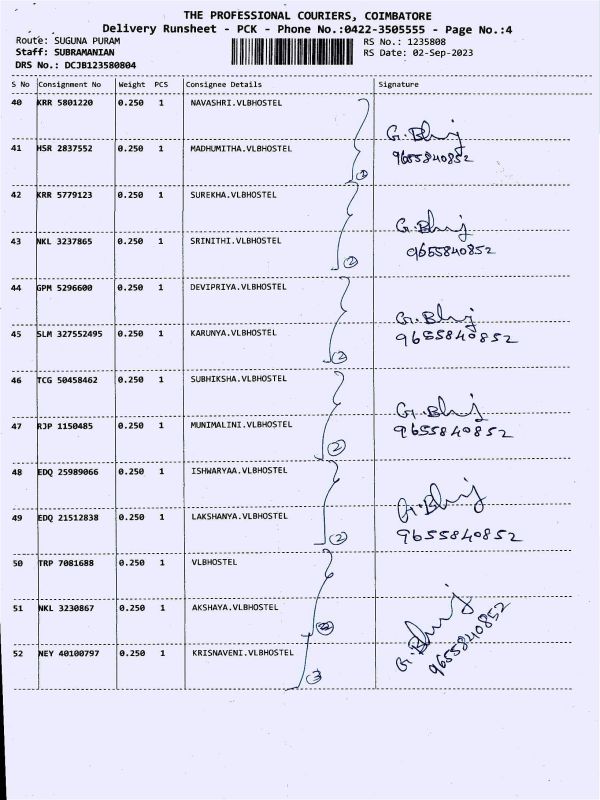 THE PROFESSIONAL COURIERS, COIMBATORE
Delivery Runsheet - PCK - Phone No.:0422-3505555 - Page No.:4
Route: SUGUNA PURAM
RS No.: 1235808
Staff: SUBRAMANIAN
RS Date: 02-Sep-2023
DRS No.: DCJB123580804
S No Consignment No Weight PCS Consignee Details Signature
40 KRR 5801220 0.250 1 NAVASHRI.VLBHOSTEL
G. Bhuj
41 HSR 2837552 0.250 1 MADHUMITHA.VLBHOSTEL
9655840852
②
42 KRR 5779123 0.250 1 SUREKHA.VLBHOSTEL
G. Bhuj
43 NKL 3237865 0.250 1 SRINITHI.VLBHOSTEL
9655840852
②
44 GPM 5296600 0.250 1 DEVIPRIYA.VLBHOSTEL
G. Bhuj
45 SLM 327552495 0.250 1 KARUNYA.VLBHOSTEL
9655840852
②
46 TCG 50458462 0.250 1 SUBHIKSHA.VLBHOSTEL
G. Bhuj
47 RJP 1150485 0.250 1 MUNIMALINI.VLBHOSTEL
9655840852
②
48 EDQ 25989066 0.250 1 ISHWARYAA.VLBHOSTEL
G. Bhuj
49 EDQ 21512838 0.250 1 LAKSHANYA.VLBHOSTEL
9655840852
②
50 TRP 7081688 0.250 1 VLBHOSTEL
51 NKL 3230867 0.250 1 AKSHAYA.VLBHOSTEL
G. Bhuj
9655840852
52 NEY 40100797 0.250 1 KRISNAVENI.VLBHOSTEL
③